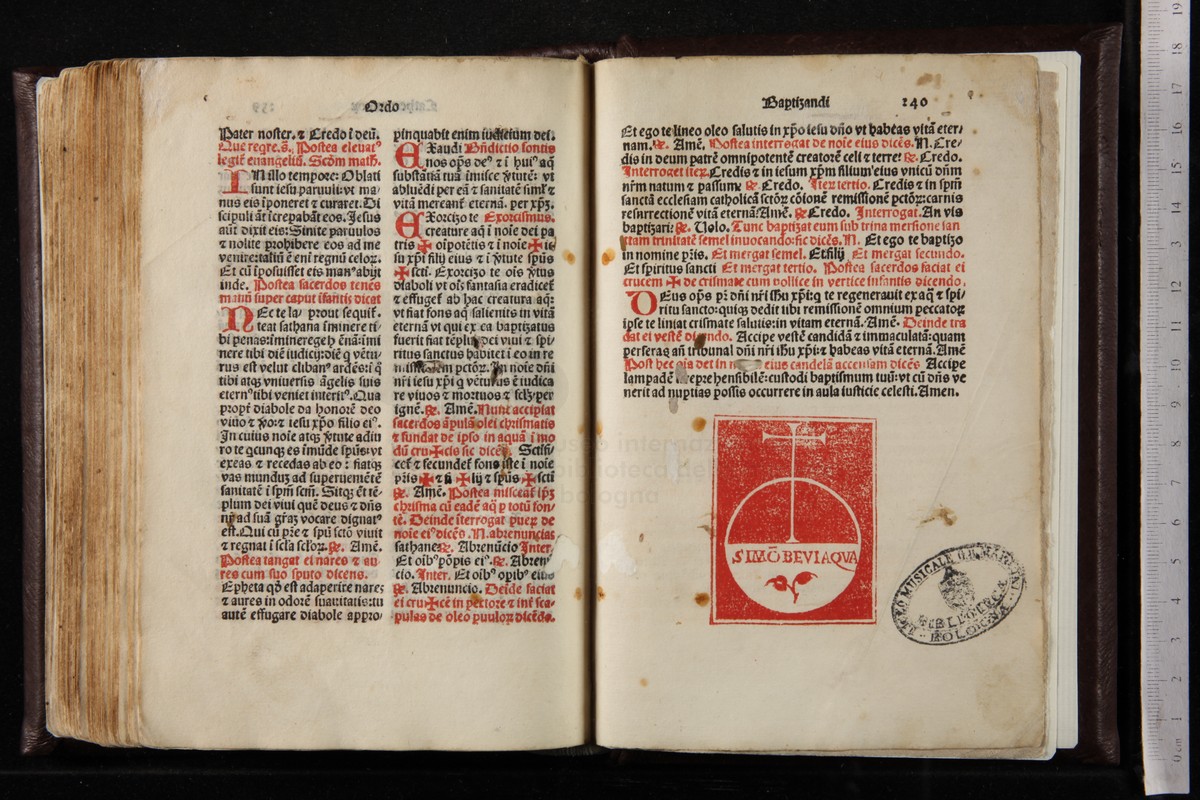 Ordo
Pater noster. ⁊ Credo ĩ deũ.
Que reqre.s. Postea eleuatᵒ
legit̃ euangeliũ. Scḋm math.
IN illo tempore: Oblati
sunt iesu paruuli: vt ma⸗
nus eis ĩponeret ⁊ curaret. Di
scipuli aũt ĩcrepabãt eos. Jesus
aũt dixit eis: Sinite paruulos
⁊ nolite prohibere eos ad me
venire: taliũ ẽ eni regnũ celoꝝ.
Et cũ ĩposuisset eis manᵒ abijt
inde. Postea sacerdos tenẽs
manũ super caput ĩfantis dicat
NEc te la⸗ prout sequit̃.
teat sathana ĩminere ti⸗
bi penas: ĩminere
nere tibi diẽ iudicij: diẽ q̃ vẽtu⸗
rus est velut clibanᵒ ardẽs: q̃
tibi atqꝫ vniuersis ãgelis tuis
eternᵒ tibi veniet interitᵒ. Qua
proptᷓ diabole da honorẽ deo
viuo ⁊ ꝟo: ⁊ iesu xp̃o filio eiᵒ.
In cuius noĩe atqꝫ ꝟtute adiu
ro te qcunqꝫ es ĩmũde sp̃us: vt
exeas ⁊ recedas ab eo: fiatqꝫ
vas mundũ ad superuemẽtẽ
sanitatẽ ĩ sp̃m scm̃. Sitqꝫ ẽt tẽ⸗
plum dei viui que deus ⁊ dñs
nr̃ ad suã gr̃aꝫ vocare dignatᵒ
est. Qui cũ pr̃e ⁊ sp̃u sctõ viuit
⁊ regnat ĩ sc̃la sc̃loꝝ. ℟. Amẽ.
Postea tangat ei nares ⁊ au⸗
res cum suo sputo dicens.
Epheta qḋ est adaperire nareꝫ
⁊ aures in odorẽ suauitatis: tu
autẽ effugare diabole appro⸗
pinquabit enim iudicium dei.
EXaudi Bñdictio fontis
nos op̃s deᵒ ⁊ ĩ huiᵒ aq̃
substãtiã tuã imisce ꝟtutẽ: vt
abluẽdi per eã ⁊ sanitatẽ simĩ ⁊
vitã mereant̃ eternã. per xp̃ꝫ.
EXorcizo te Exorcismus.
creature aq̃ ĩ noĩe dei pa
tris ✠ oĩpotẽtis ⁊ ĩ noĩe ✠ ie⸗
su xp̃i filij eius ⁊ ĩ ꝟtute sp̃us
✠ sctĩ. Exorcizo te oĩs ꝟtus
diaboli vt oĩs fantasia eradiceť
⁊ effugeť ab hac creatura aq̃:
vt fiat fons aq̃ salientis in vitã
eternã vt qui ex ea baptizatus
fuerit fiat tẽplũ dei viui ⁊ spi⸗
ritus sanctus habitet ĩ eo in re
missionem pctõꝝ. In noĩe dñi
nr̃i iesu xp̃i q̃ vẽturus ẽ iudica
re viuos ⁊ mortuos ⁊ sc̃lꝫ per
ignẽ. ℟. Amẽ. Nunc accipiat
sacerdos ãpulã olei chrismatis
⁊ fundat de ipso in aquã ĩ mo
dũ cru✠cis sic dicẽs. Sctĩfi⸗
ceť ⁊ secundeť fons iste ĩ noĩe
pr̃is ✠ ⁊ fi ✠ lij ⁊ sp̃us ✠ sctĩ
℟. Amẽ. Postea misceat ip̃ꝫ
chrisma cũ eadẽ aq̃ ꝑ totũ fon⸗
tẽ. Deinde ĩterrogat pueꝝ de
noĩe eiᵒ dicẽs. N. abrenuncias
sathane. ℟. Abrenũcio Inter.
Et oĩbᵒ põpis eiᵒ. ℟. Abrenun
cio. Inter. Et oĩbᵒ opibᵒ eius
℟. Abrenuncio. Deĩde faciat
ei cru✠cẽ in pectore ⁊ int̃ sca⸗
pulas de oleo puuloꝝ dicẽdo.
Baptizandi 140
Et ego te lineo oleo salutis in xp̃o iesu dño vt habeas vitã eter⸗
nam. ℟. Amẽ. Postea interrogat de noĩe eius dicẽs. N. Cre⸗
dis in deum patrẽ omnipotentẽ creatorẽ celi ⁊ terre: ℟. Credo.
Interroget iteꝝ. Credis ⁊ in iesum xp̃m filium eius vnicũ dñm
nr̃m natum ⁊ passum: ℟. Credo. Iteꝝ tertio. Credis ⁊ in sp̃m
sanctã ecclesiam catholicã sctõꝝ cõionẽ remissionẽ pctõꝝ: carnis
resnrrectionẽ vitã eternã: Amẽ. ℟ Credo. Interrogat. An vis
baptizari: ℟. Uolo. Tunc baptizat eum sub trina mersione san
ctam trinitatẽ semel inuocando: sic dicẽs. N. Et ego te baptizo
in nomine pr̃is. Et mergat semel. Et filij Et mergat secundo.
Et spiritus sancti Et mergat tertio. Postea sacerdos faciat ei
crucem ✠ de crismate cum pollice in vertice infantis dicendo.
DEus op̃s pr̃ dñi nr̃i ihu xp̃i: q̃ te regenerauit ex aq̃ ⁊ spi⸗
ritu sancto: quiqꝫ dedit tibi remissionẽ omnium peccatoꝝ
ipse te liniat crismate salutis: in vitam eternã. Amẽ. Deinde tra
dat ei vestẽ dicendo. Accipe vestẽ candidã ⁊ immaculatã: quam
perferas añ tribunal dñi nr̃i ihu xp̃i: ⁊ habeas vitã eternã. Amẽ
Post hec det in eius candelã accensam dicẽs Accipe
lampadẽ irreprehensibilẽ: custodi baptismum tuũ: vt cũ dñs ve
nerit ad nuptias possis occurrere in aula iusticie celesti. Amen.
SIMŌ BEVIAQVA
LICEO MUSICALE G.B. MARTINI
BIBLIOTECA
BOLOGNA
museo internaz
biblioteca del
bologna